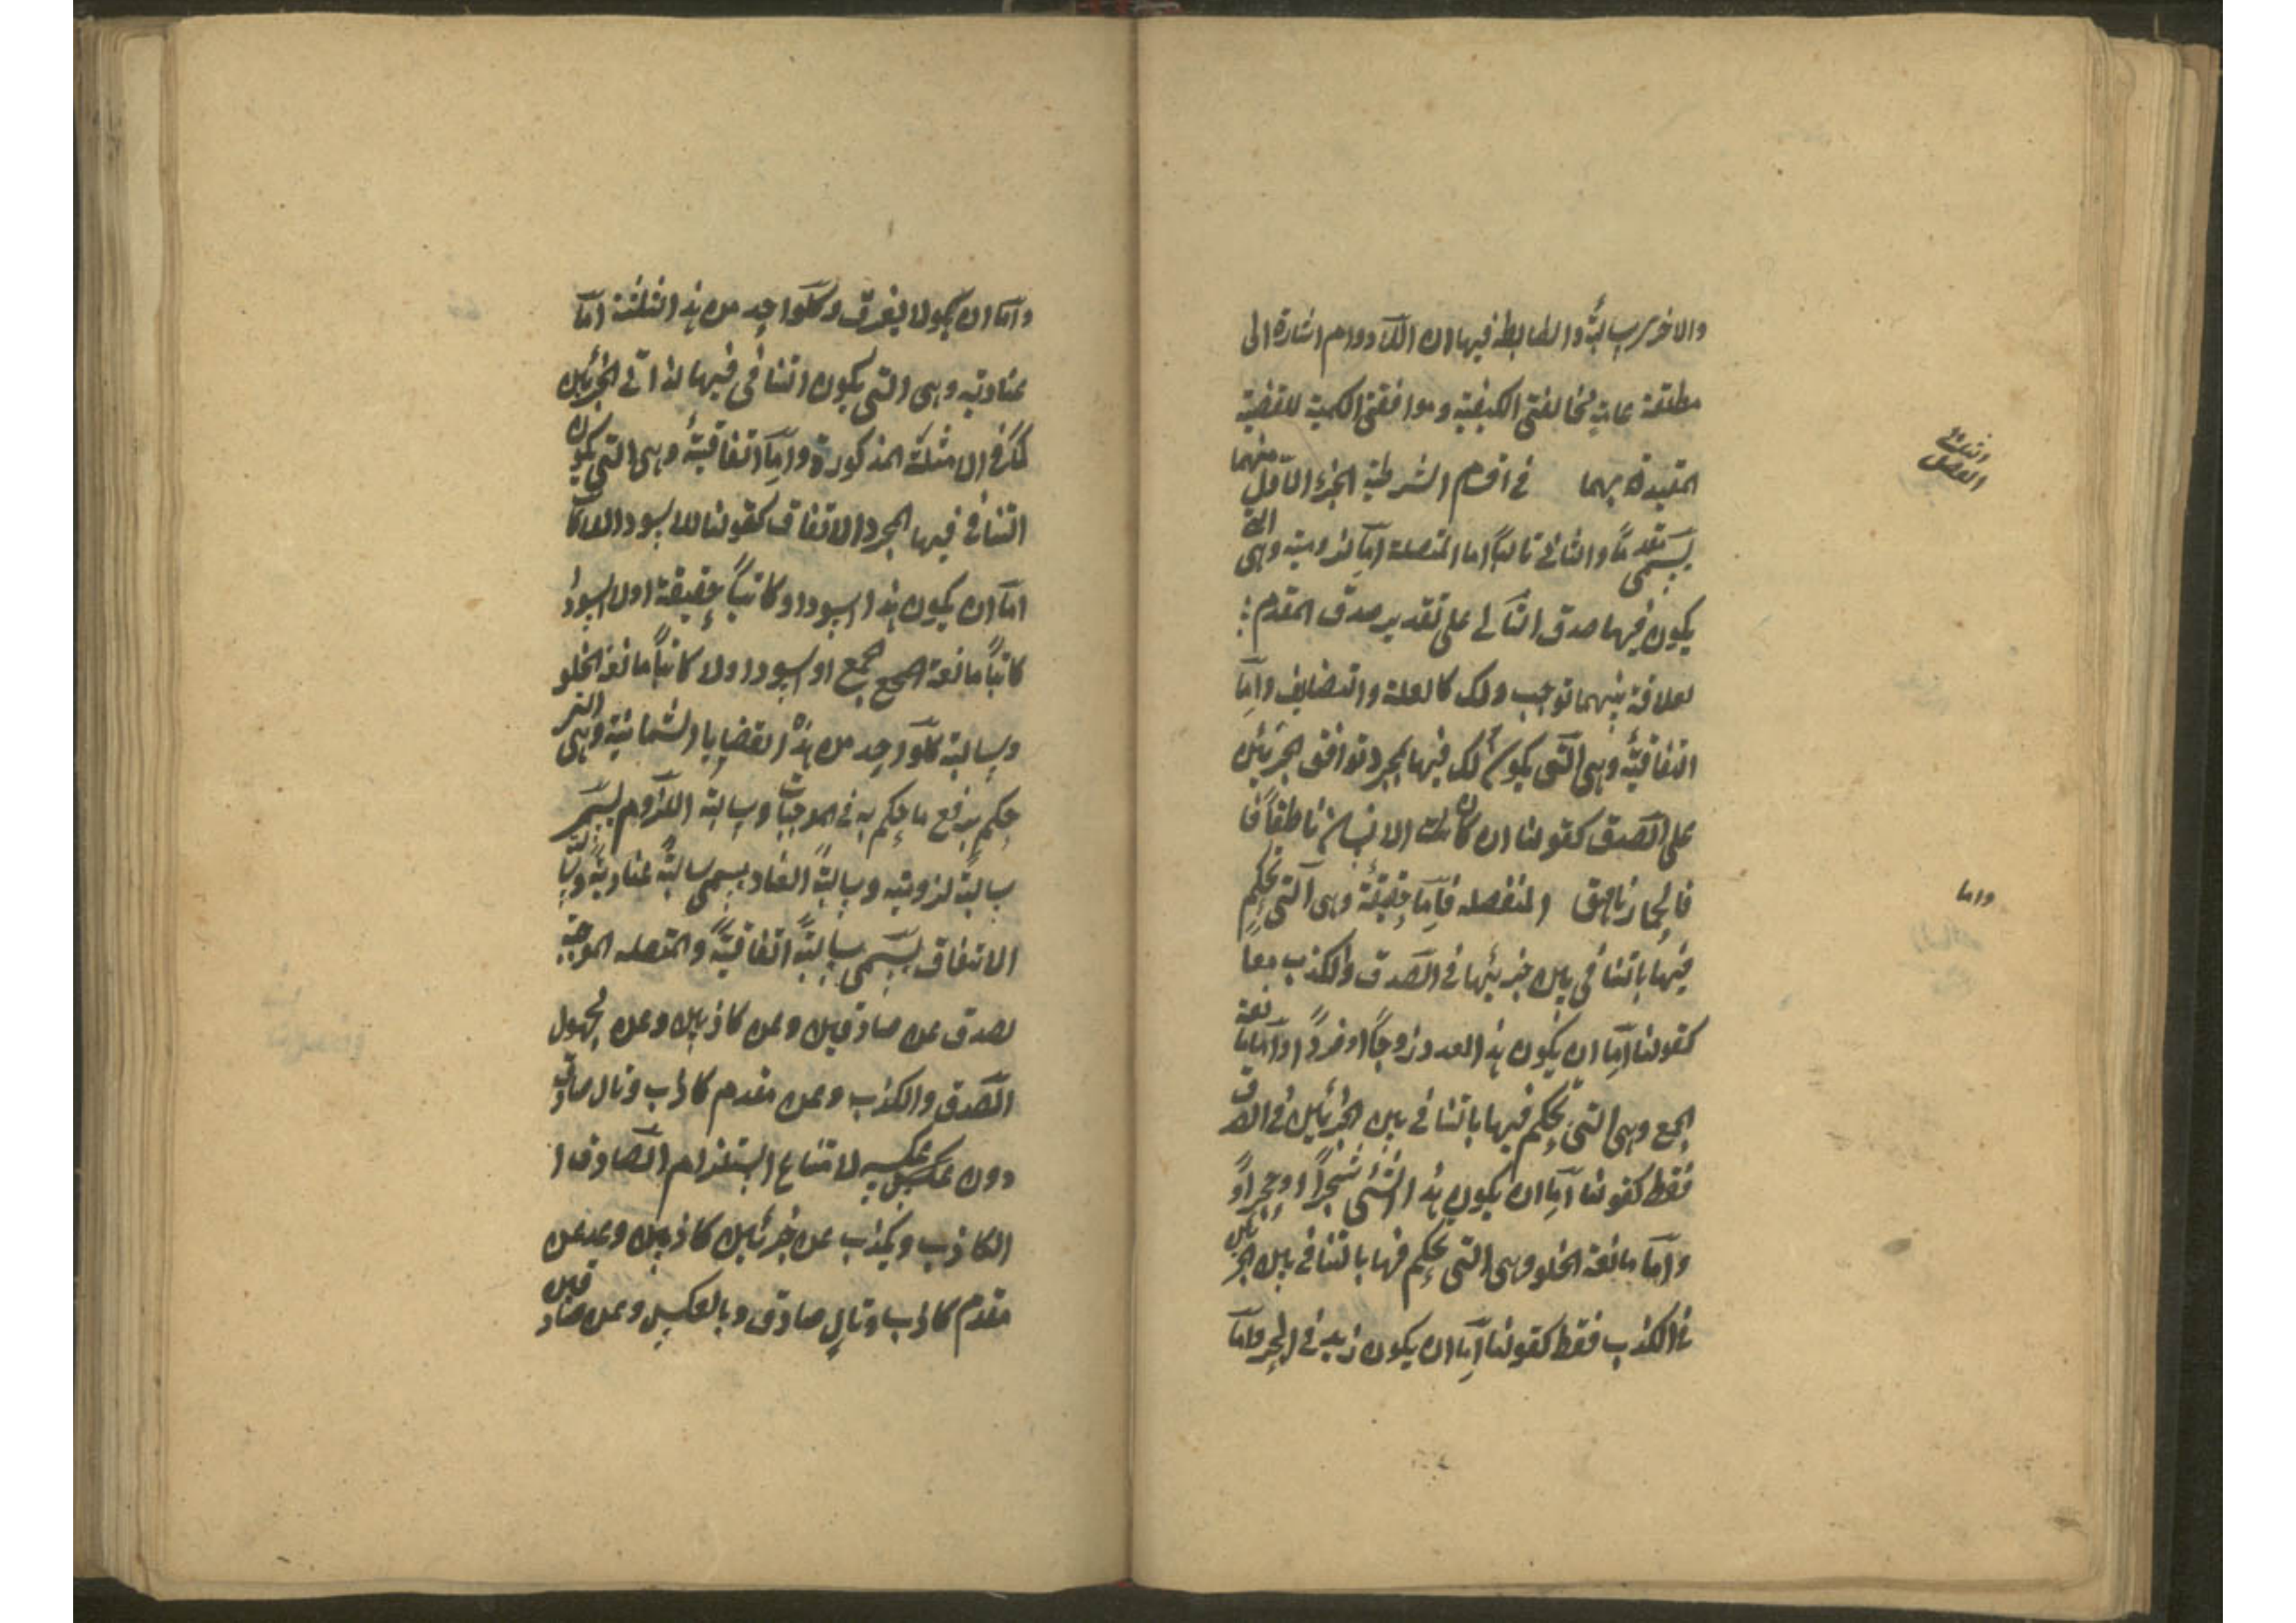 والاخرى سالبة والضابط فيها ان اللادوام اشارة الى
مطلقة عامة مخالفتى الكيفية وموافقتى الكمية للقضية
المقيدة بهما في اقسام الشرطية الجزء الاول منهما
يسمى مقدماً والثاني تالياً اما المتصلة اما لزومية وهى التى
يكون فيها صدق التالى على تقدير صدق المقدم
لعلاقة بينهما توجب ذلك كالعلية والتضايف واما
اتفاقية وهى التى يكون ذلك فيها بمجرد توافق الجزئين
على الصدق كقولنا ان كان الانسان ناطقاً
فالحمار ناهق المنفصله فاما حقيقة وهى التى يحكم
فيها بالتنافى بين جزئيها فى الصدق والكذب معا
كقولنا اما ان يكون هذا العدد زوجاً او فرداً واما مانعة
الجمع وهى التى يحكم فيها بالتنافى بين الجزئين فى الصدق
فقط كقولنا اما ان يكون هذا الشئ شجراً او حجراً
واما مانعة الخلو وهى التى يحكم فيها بالتنافى بين الجزئين
فى الكذب فقط كقولنا اما ان يكون زيد فى البحر واما
الفصل الثانى
واما
واما ان يكون لا يغرق وكل واحد من هذه الثلثة اما
عنادية وهى التى يكون التنافى فيها لذاتى الجزئين
كما فى الامثلة المذكورة واما اتفاقية وهى التى يكون
التنافى فيها بمجرد الاتفاق كقولنا للاسود اللاكاتب
اما ان يكون هذا اسود او كاتباً حقيقة او لا اسود او
كاتباً مانعة الجمع او اسود او لا كاتباً مانعة الخلو
وسالبة كل واحد من هذه القضايا الثمانية وهى التى
حكم برفع ما حكم به فى الموجبات وسالبة اللزوم يسمى
سالبة لزومية وسالبة العناد يسمى سالبة عنادية وسالبة
الاتفاق يسمى سالبة اتفاقية والمتصله الموجبة
تصدق عن صادقين وعن كاذبين وعن مجهول
الصدق والكذب وعن مقدم كاذب وتال صادق
دون عكسه لامتناع استلزام الصادق ا
الكاذب ويكذب عن جزئين كاذبين وعن
مقدم كاذب وتال صادق وبالعكس وعن صادقين